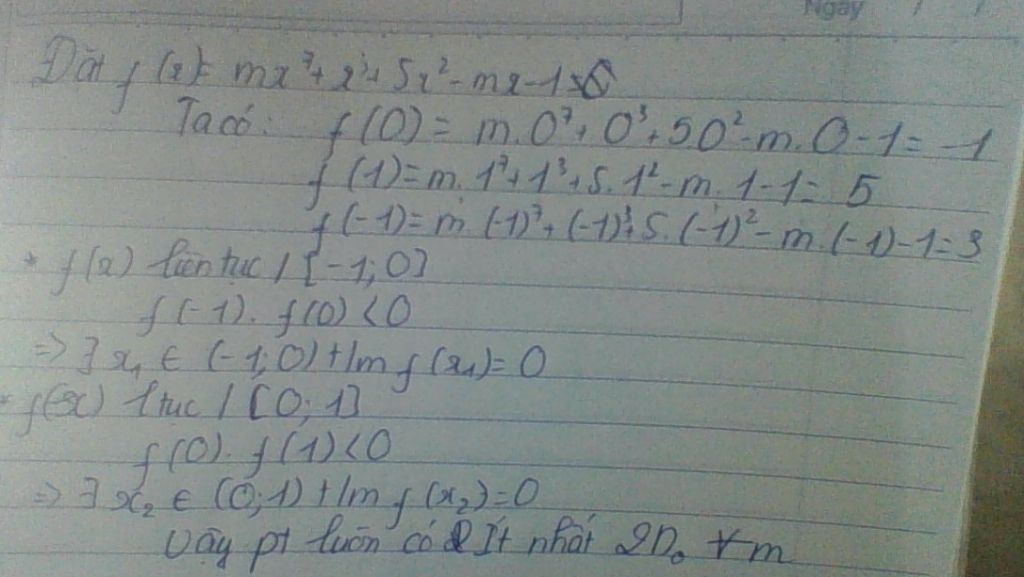 Ngày / /
Đặt f(x)= mx⁷+x³+5x²-mx-1
Ta có: f(0)= m.0⁷+0³+50²-m.0-1=-1
f(1)=m.1⁷+1³+5.1²-m.1-1= 5
f(-1)=m.(-1)⁷+(-1)³+5.(-1)²-m.(-1)-1=3
* f(x) liên tục / [-1;0]
f(-1).f(0)<0
=> ∃ x₁ ∈ (-1;0) t/m f(x₁)=0
* f(x) l tục / [0;1]
f(0).f(1)<0
=> ∃ x₂ ∈ (0;1) t/m f(x₂)=0
Vậy pt luôn có ít nhất 2 n₀ ∀m